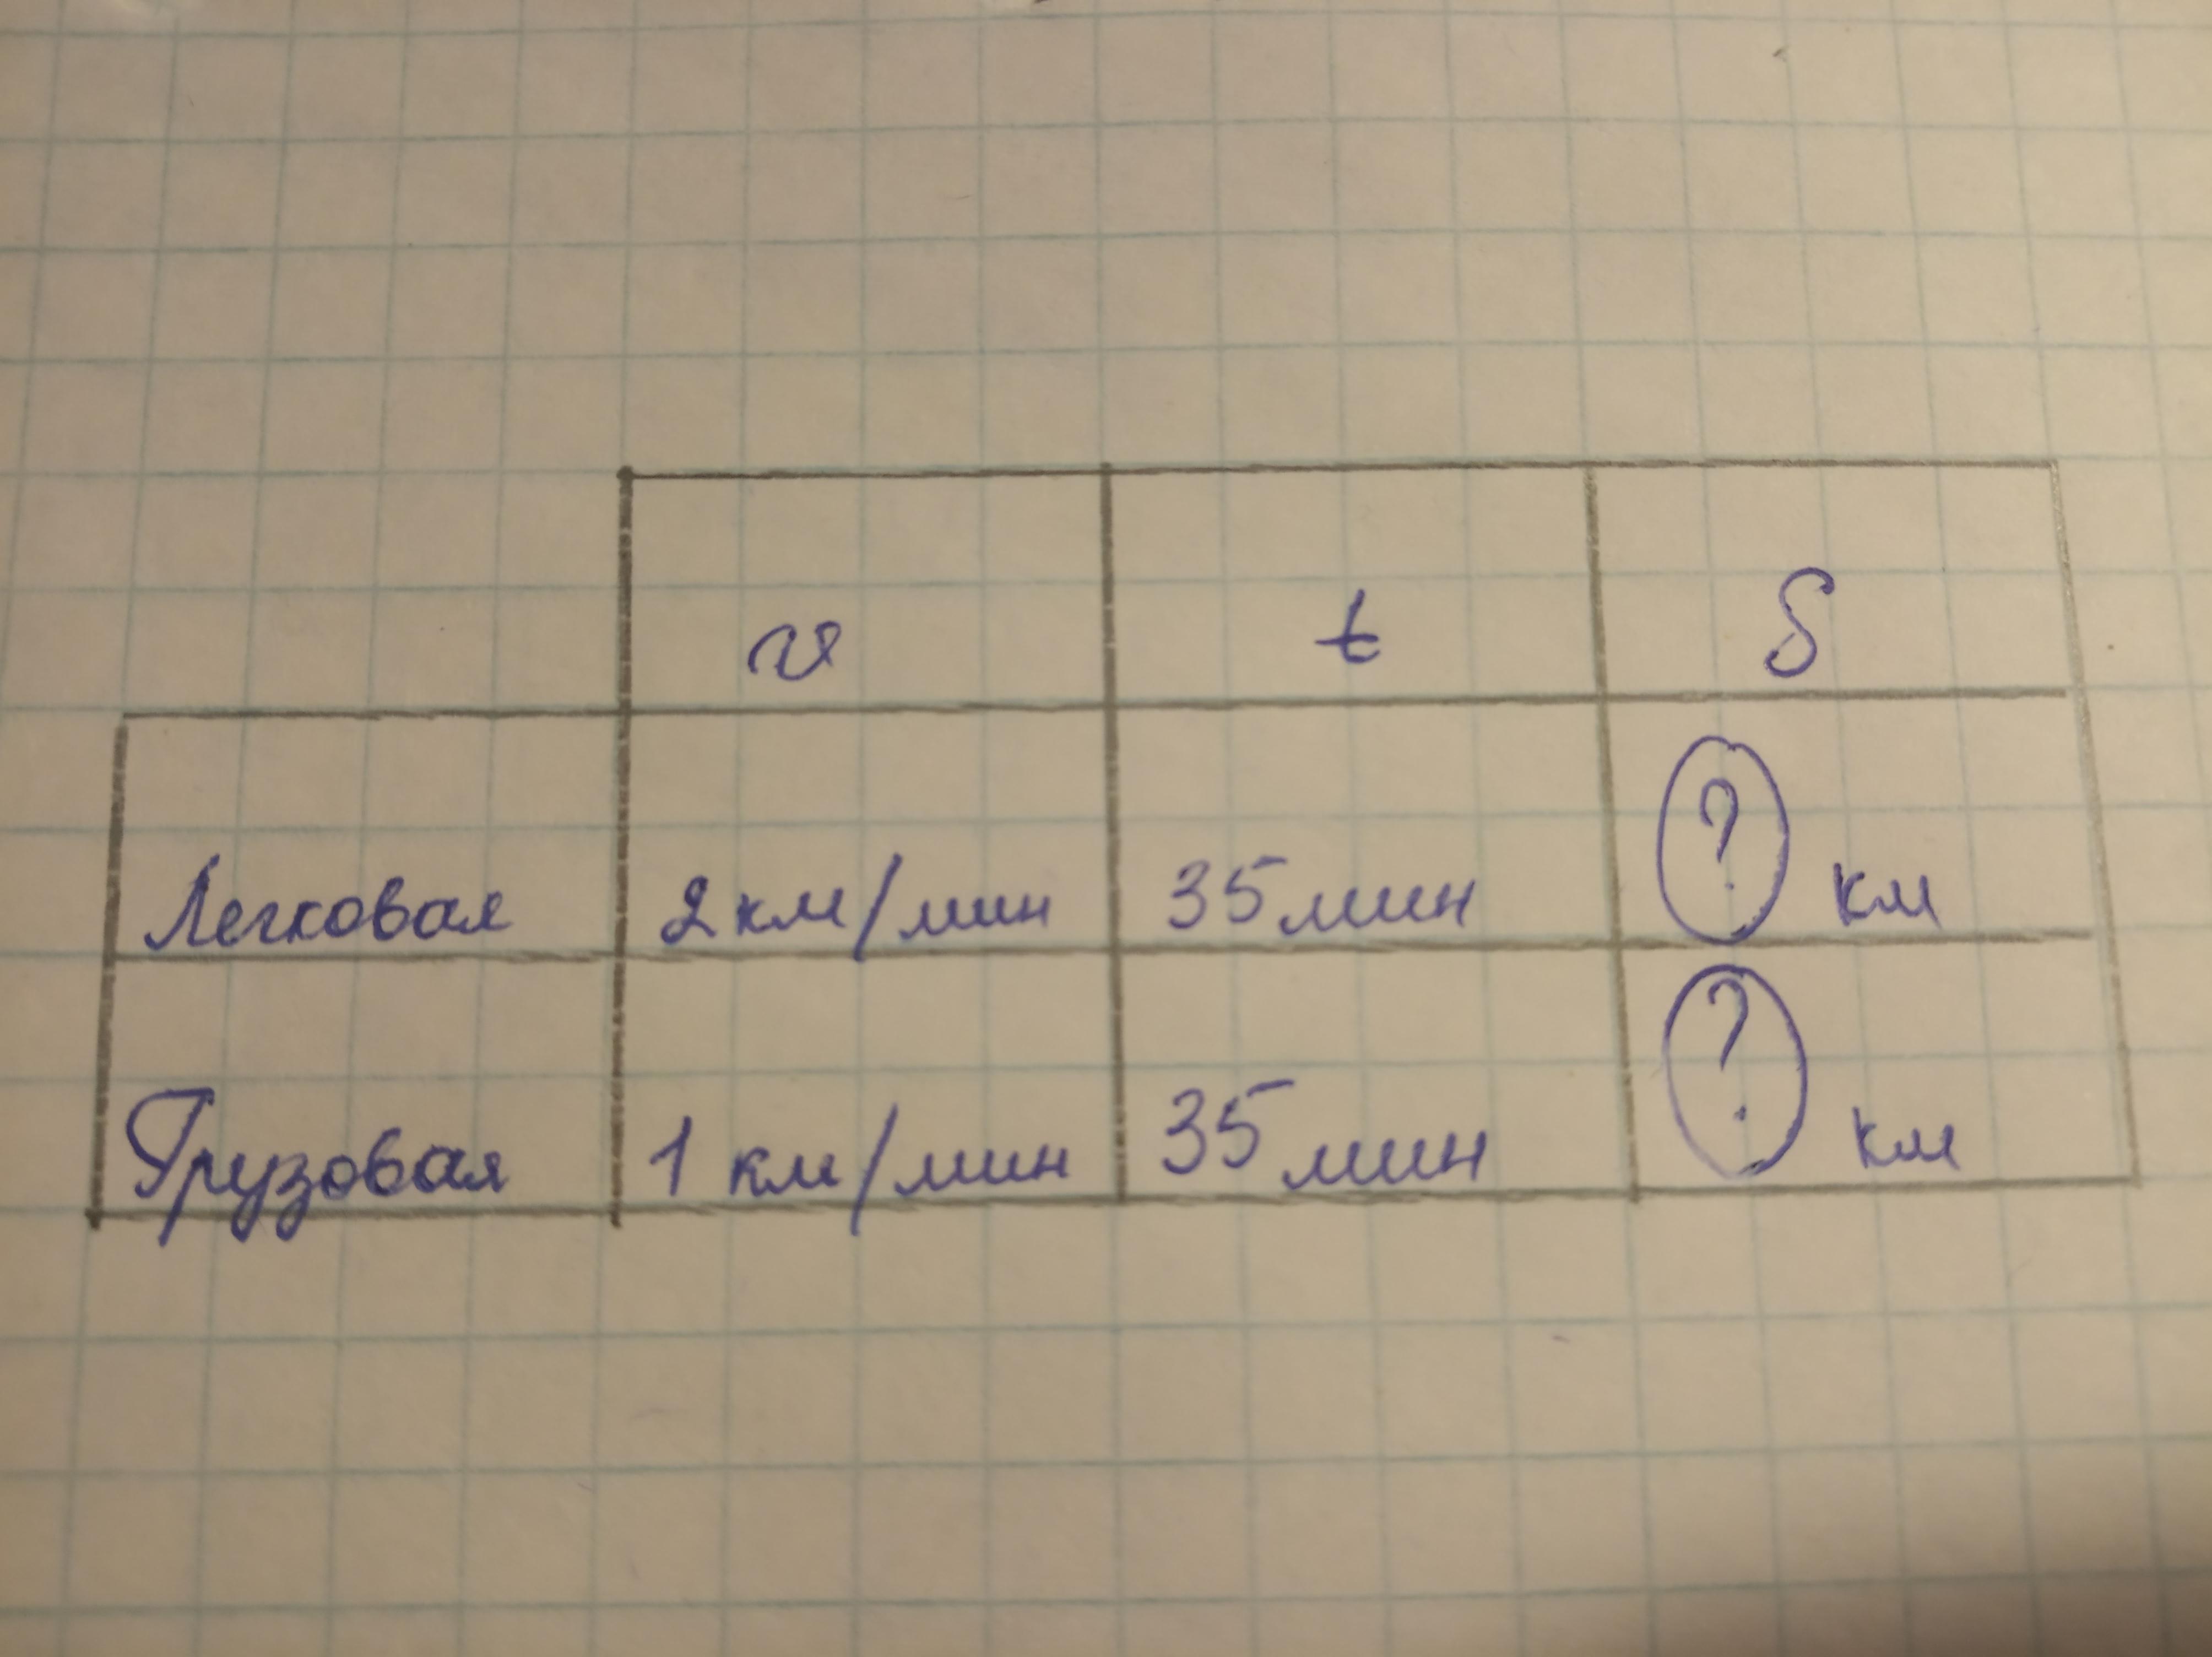 v t S
Легковая 2 км/мин 35 мин ? км
Грузовая 1 км/мин 35 мин ? км